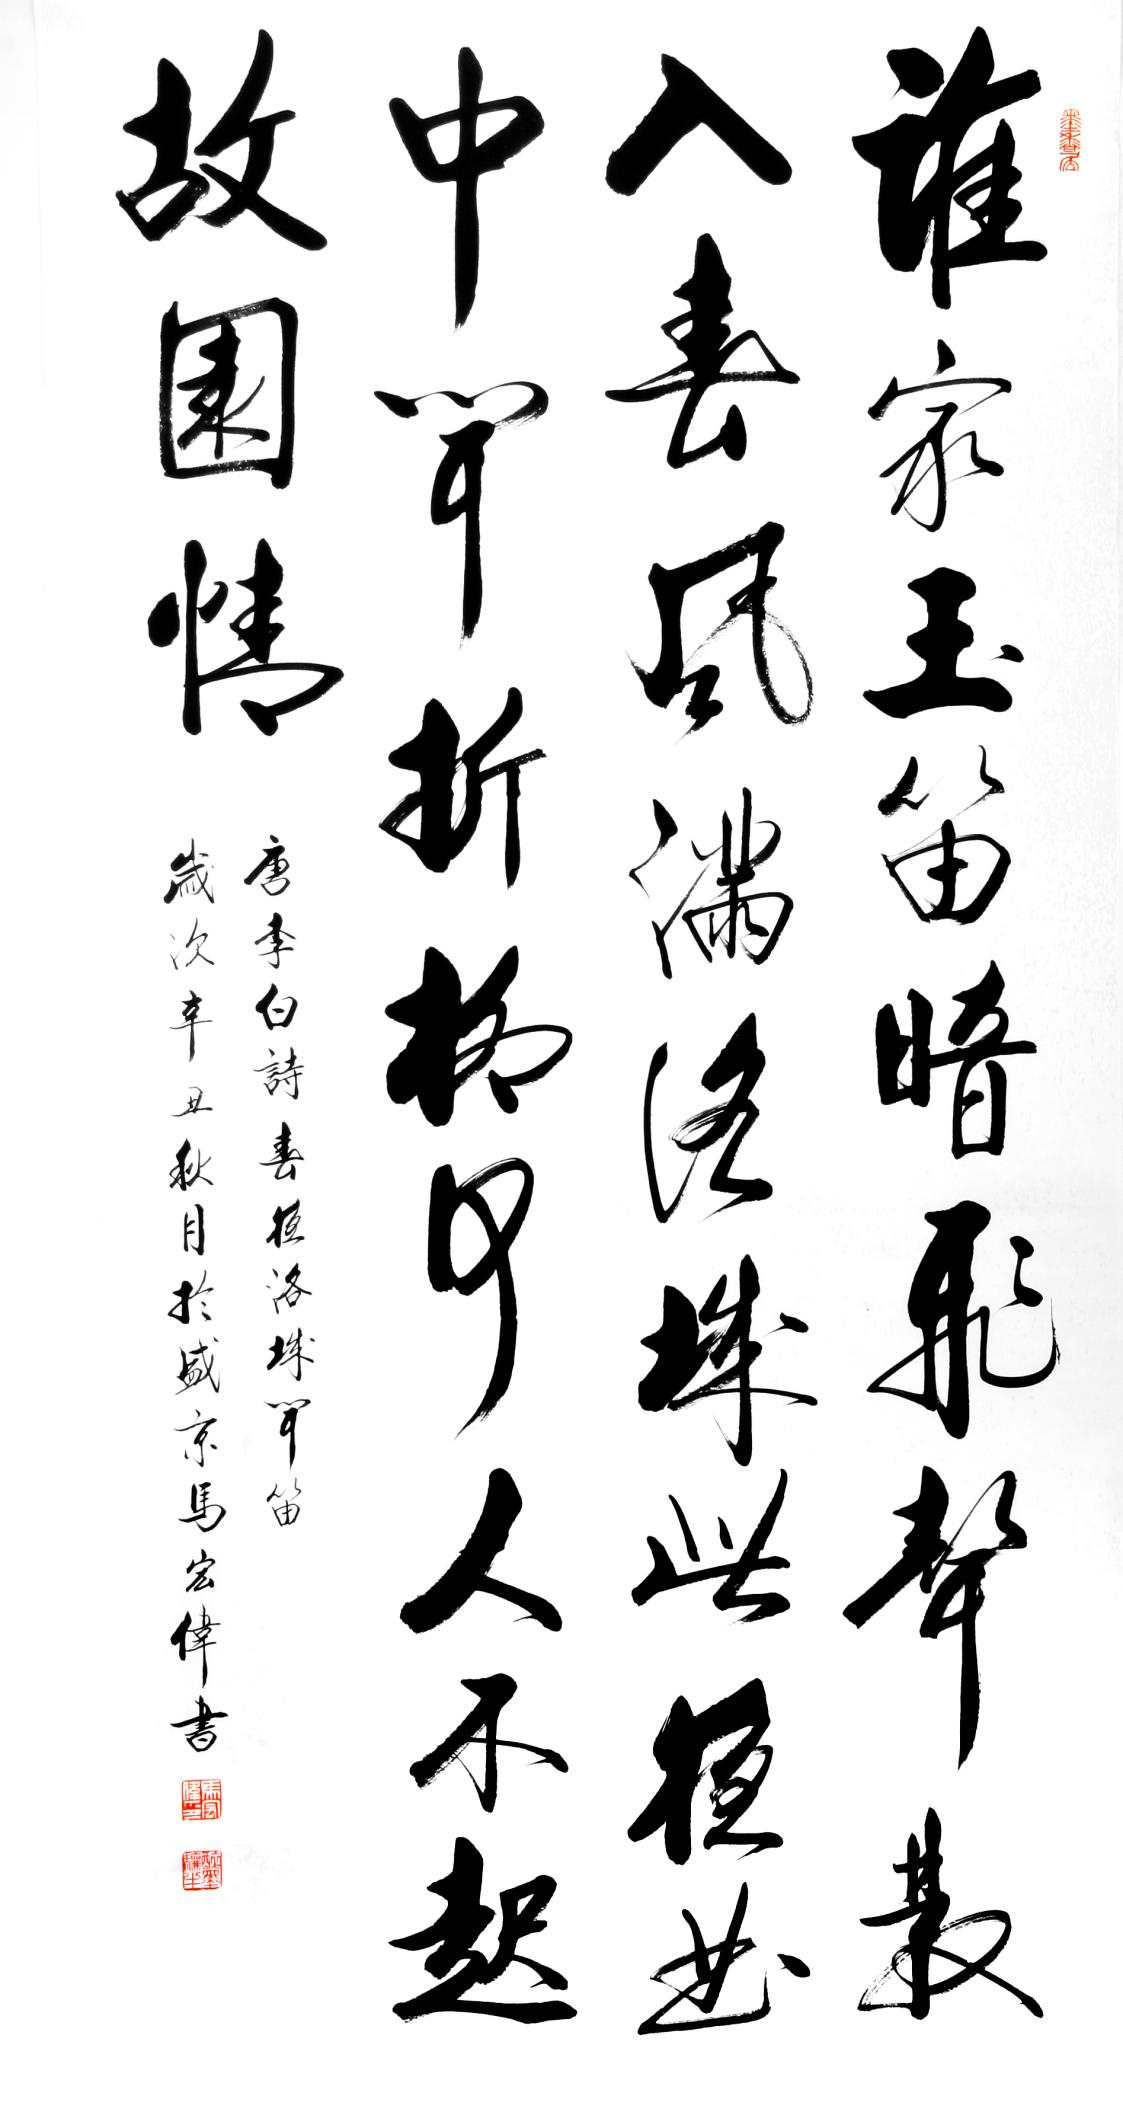 誰家玉笛暗飛聲散
入春風滿洛城此夜曲
中聞折柳何人不起
故園情
唐李白詩春夜洛城聞笛
歲次辛丑秋月於盛京馬宏偉書